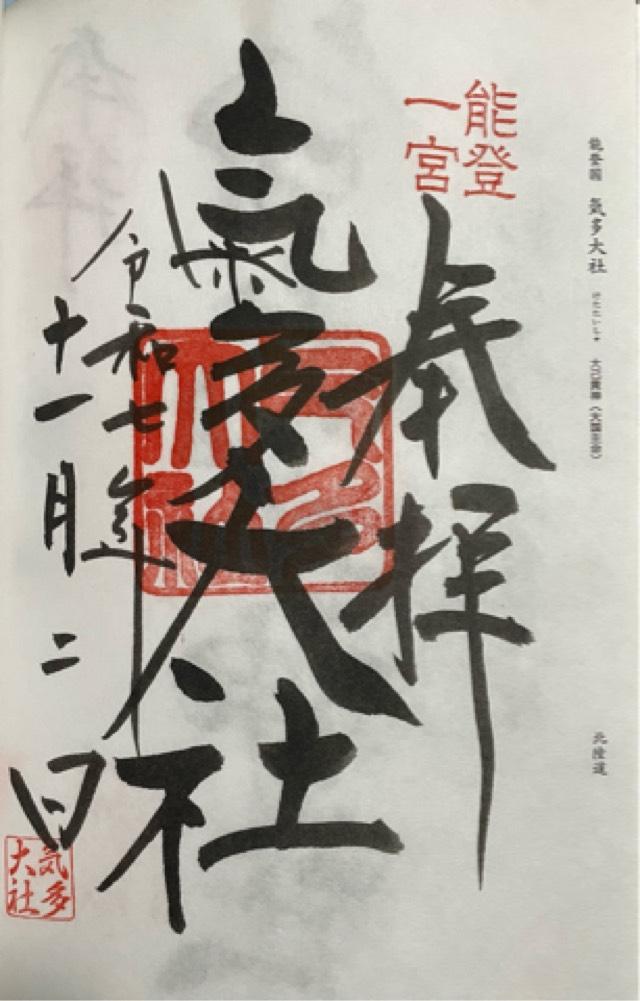 能登国 気多大社 けたたいしゃ 大己貴神(大国主命)
北陸道
能登
一宮
奉拝
氣多大社
令和七年
十一月二日
気多
大社